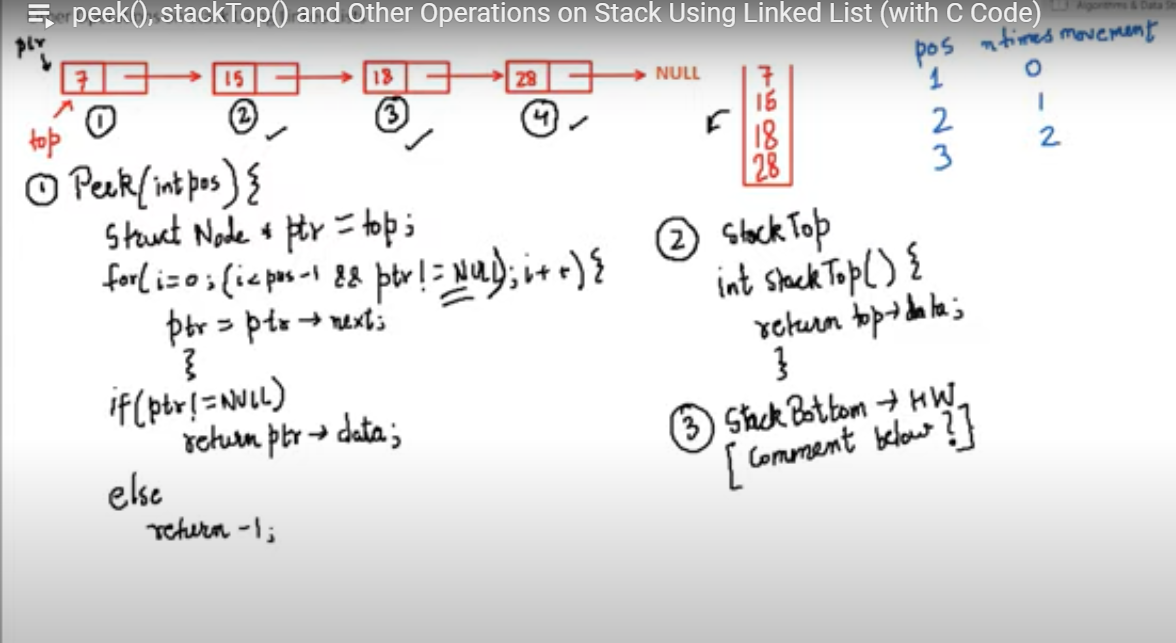 peek(), stackTop() and Other Operations on Stack Using Linked List (with C Code)
Algorithms & Data St
ptr
7 15 18 28 NULL
top
1 2 3 4
7
15
18
28
pos n times movement
1 0
2 1
3 2
1 Peek(int pos) {
Struct Node * ptr = top;
for(i=0; (i<pos-1 && ptr!=NULL); i++) {
ptr = ptr → next;
}
if(ptr!=NULL)
return ptr → data;
else
return -1;
2 StackTop
int stackTop() {
return top→data;
}
3 StackBottom → HW
[Comment below?]